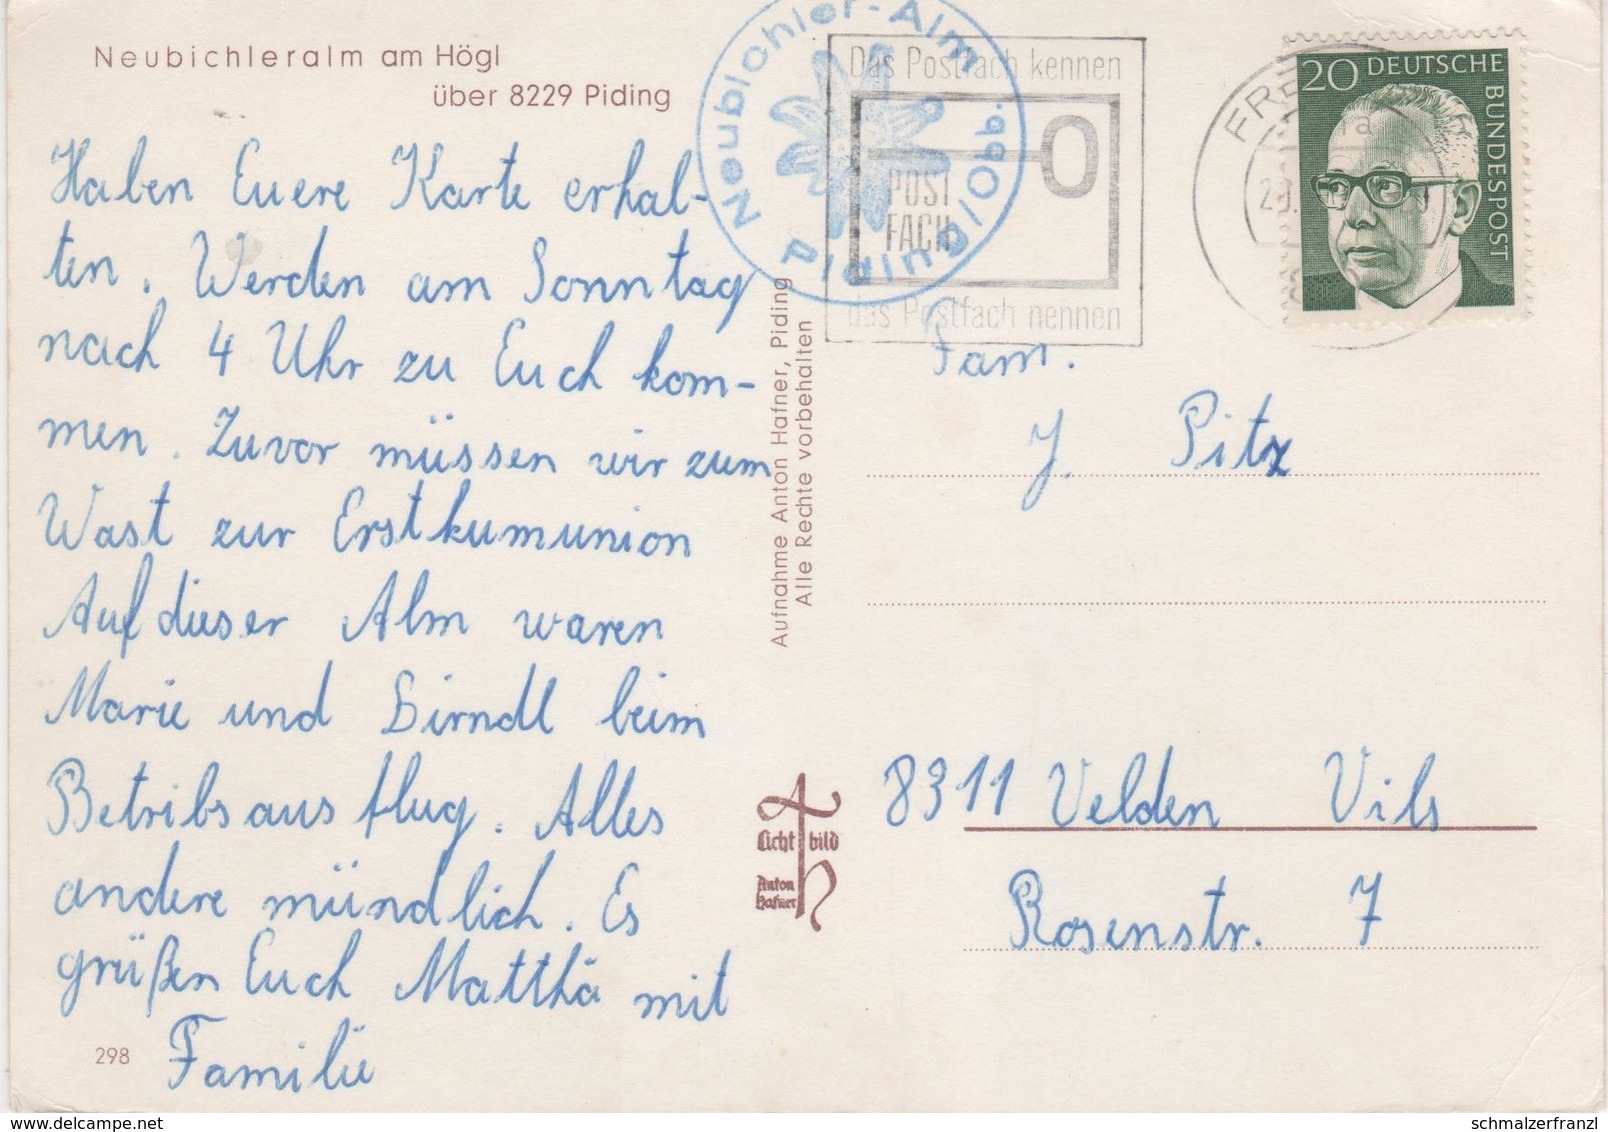 Neubichleralm am Högl
über 8229 Piding
Haben Euere Karte erhal-
ten. Werden am Sonntag
nach 4 Uhr zu Euch kom-
men. Zuvor müssen wir zum
Wast zur Erstkumunion
Auf dieser Alm waren
Marie und Dirndl beim
Betribsausflug. Alles
andere mündlich. Es
grüßen Euch Matthä mit
Familie
298
Aufnahme Anton Hafner, Piding
Alle Rechte vorbehalten
Licht bild
Anton
Hafner
Neubichler-Alm
Piding/Obb.
Das Postfach kennen
POST
FACH
das Postfach nennen
FRE
20 DEUTSCHE
BUNDESPOST
Fam.
J. Pitz
8311 Velden Vils
Rosenstr. 7
schmalzerfranzl